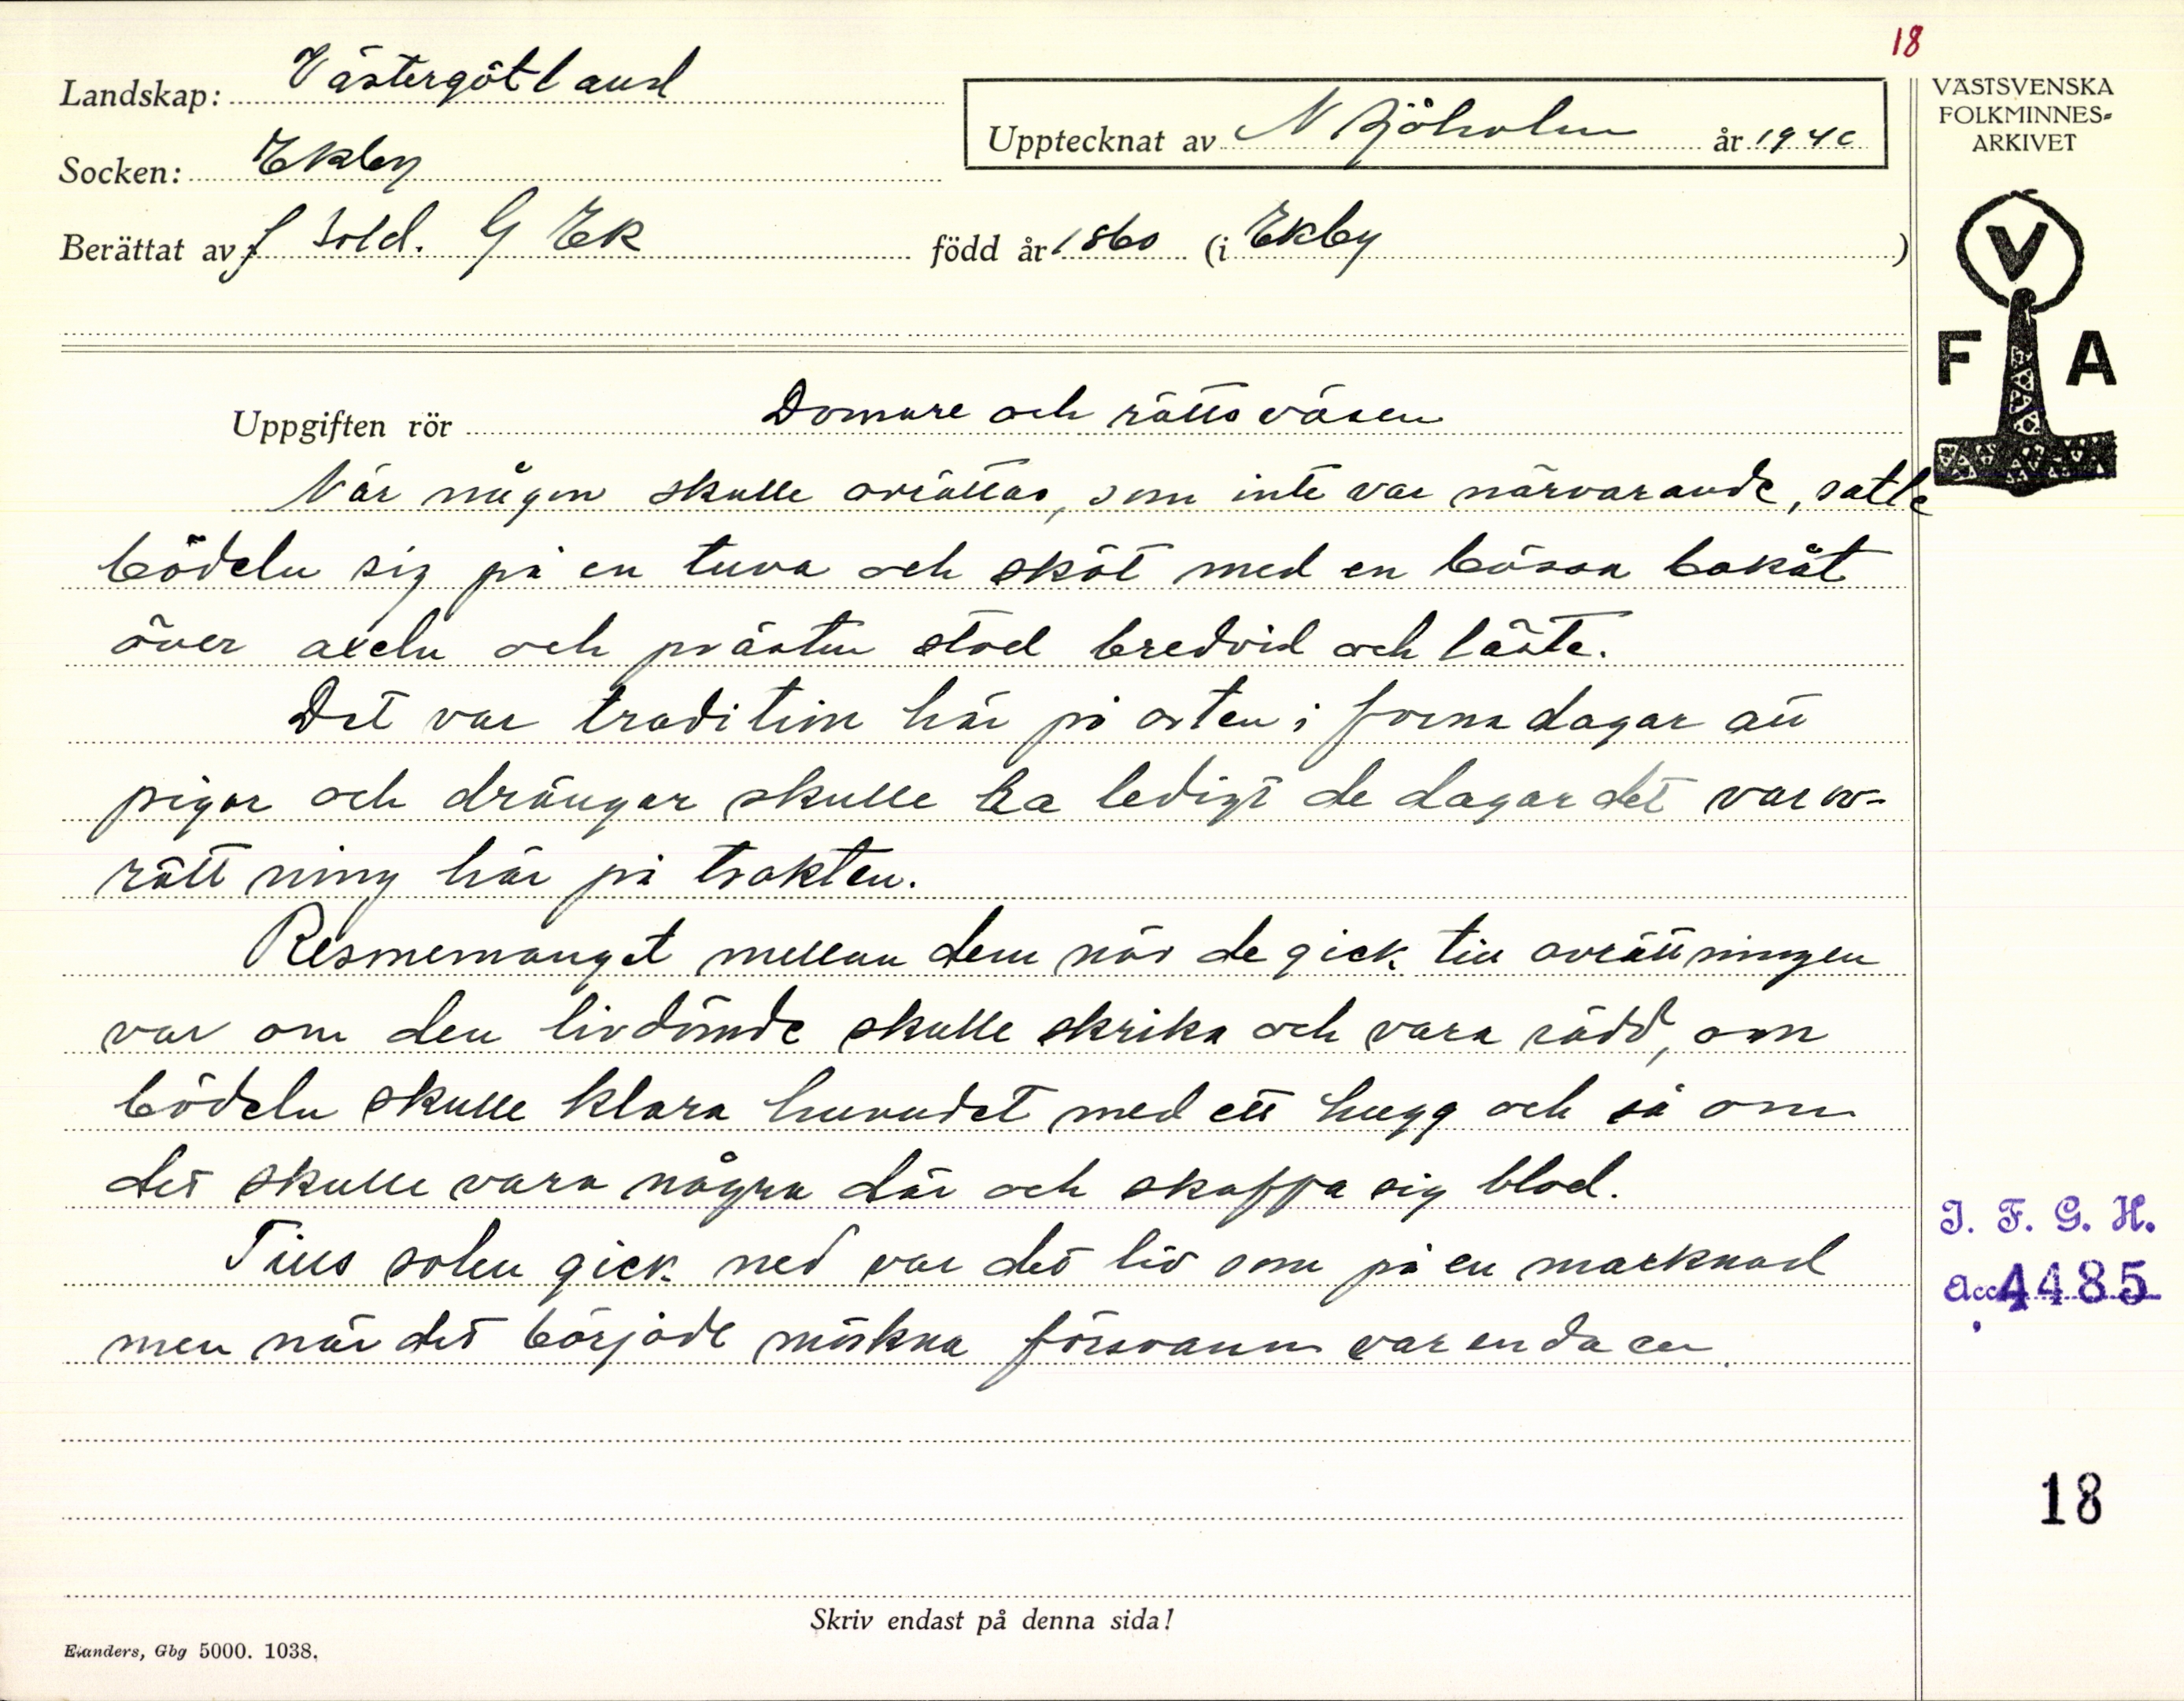 18
Landskap: Västergötland
Socken: Ekby
Berättat av f sold. G Ek född år 1860 (i Ekby )
Upptecknat av N Sjöholm år 1940
VÄSTSVENSKA
FOLKMINNES=
ARKIVET
V
F A
Uppgiften rör Domare och rättsväsen
När någon skulle avrättas, som inte var närvarande, satte
bödeln sig på en tuva och sköt med en bössa bakåt
över axeln och prästen stod bredvid och läste.
Det var tradition här på orten i forna dagar att
pigor och drängar skulle ha ledigt de dagar det var av-
rättning här på trakten.
Resmemanget mellan dem när de gick till avrättningen
var om den livdömde skulle skrika och vara rädd, om
bödeln skulle klara huvudet med ett hugg och så om
det skulle vara några där och skaffa sig blod.
Tills solen gick ned var det liv som på en marknad
men när det började mörkna försvann varenda en.
I. F. G. H.
Acc. 4485
18
Skriv endast på denna sida!
Elanders, Gbg 5000. 1038.